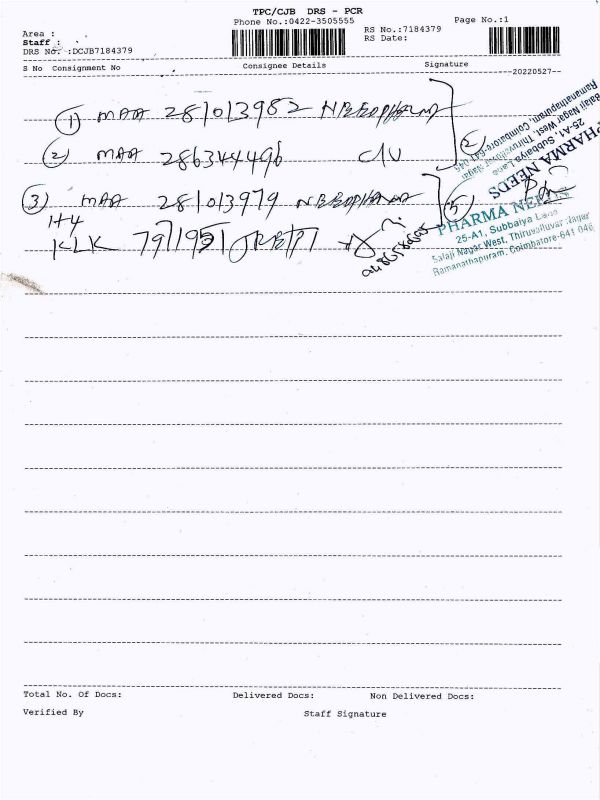 TPC/CJB DRS - PCR
Phone No.:0422-3505555
Page No.:1
Area :
RS No.:7184379
Staff :
RS Date:
DRS No. :DCJB7184379
S No Consignment No Consignee Details Signature
20220527
1 MAA 281013982
2 MAA 286344496
3 MAA 281013979
1+4
KLK
PHARMA NEEDS
25-A1, Subbaiya Lane
Balaji Nagar West, Thiruvalluvar Nagar
Ramanathapuram, Coimbatore-641 045
PHARMA NEEDS
25-A1, Subbaiya Lane
Balaji Nagar West, Thiruvalluvar Nagar
Ramanathapuram, Coimbatore-641 045
Total No. Of Docs: Delivered Docs: Non Delivered Docs:
Verified By Staff Signature